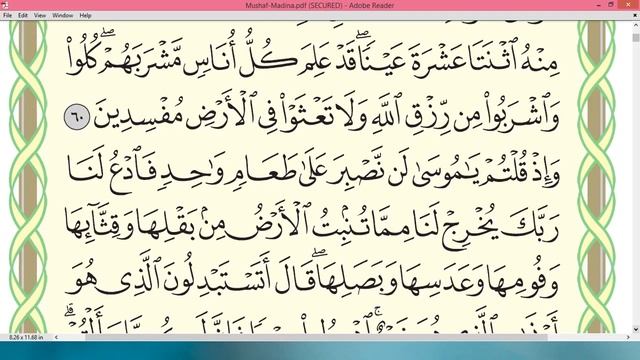 Mushaf-Madina.pdf (SECURED) - Adobe Reader
File Edit View Window Help
مِنْهُ ٱثْنَتَا عَشْرَةَ عَيْنًا ۖ قَدْ عَلِمَ كُلُّ أُنَاسٍ مَّشْرَبَهُمْ ۖ كُلُوا۟
وَٱشْرَبُوا۟ مِن رِّزْقِ ٱللَّهِ وَلَا تَعْثَوْا۟ فِى ٱلْأَرْضِ مُفْسِدِينَ ٦٠
وَإِذْ قُلْتُمْ يَـٰمُوسَىٰ لَن نَّصْبِرَ عَلَىٰ طَعَامٍ وَٰحِدٍ فَٱدْعُ لَنَا
رَبَّكَ يُخْرِجْ لَنَا مِمَّا تُنۢبِتُ ٱلْأَرْضُ مِنۢ بَقْلِهَا وَقِثَّآئِهَا
وَفُومِهَا وَعَدَسِهَا وَبَصَلِهَا ۖ قَالَ أَتَسْتَبْدِلُونَ ٱلَّذِى هُوَ
8.26 x 11.68 in